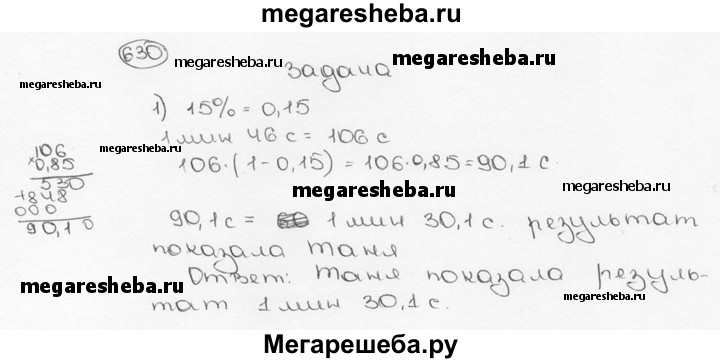 megaresheba.ru
630
megaresheba.ru megaresheba.ru
задача
megaresheba.ru
1) 15% = 0,15
1 мин 46 с = 106 с
megaresheba.ru
106·(1-0,15) = 106·0,85 = 90,1 с.
106
×0,85
530
+848
000
90,10
megaresheba.ru
90,1 с = 1 мин 30,1 с. результат
показала Таня
Ответ: Таня показала резуль-
тат 1 мин 30,1 с.
megaresheba.ru
megaresheba.ru
Мегарешеба.ру